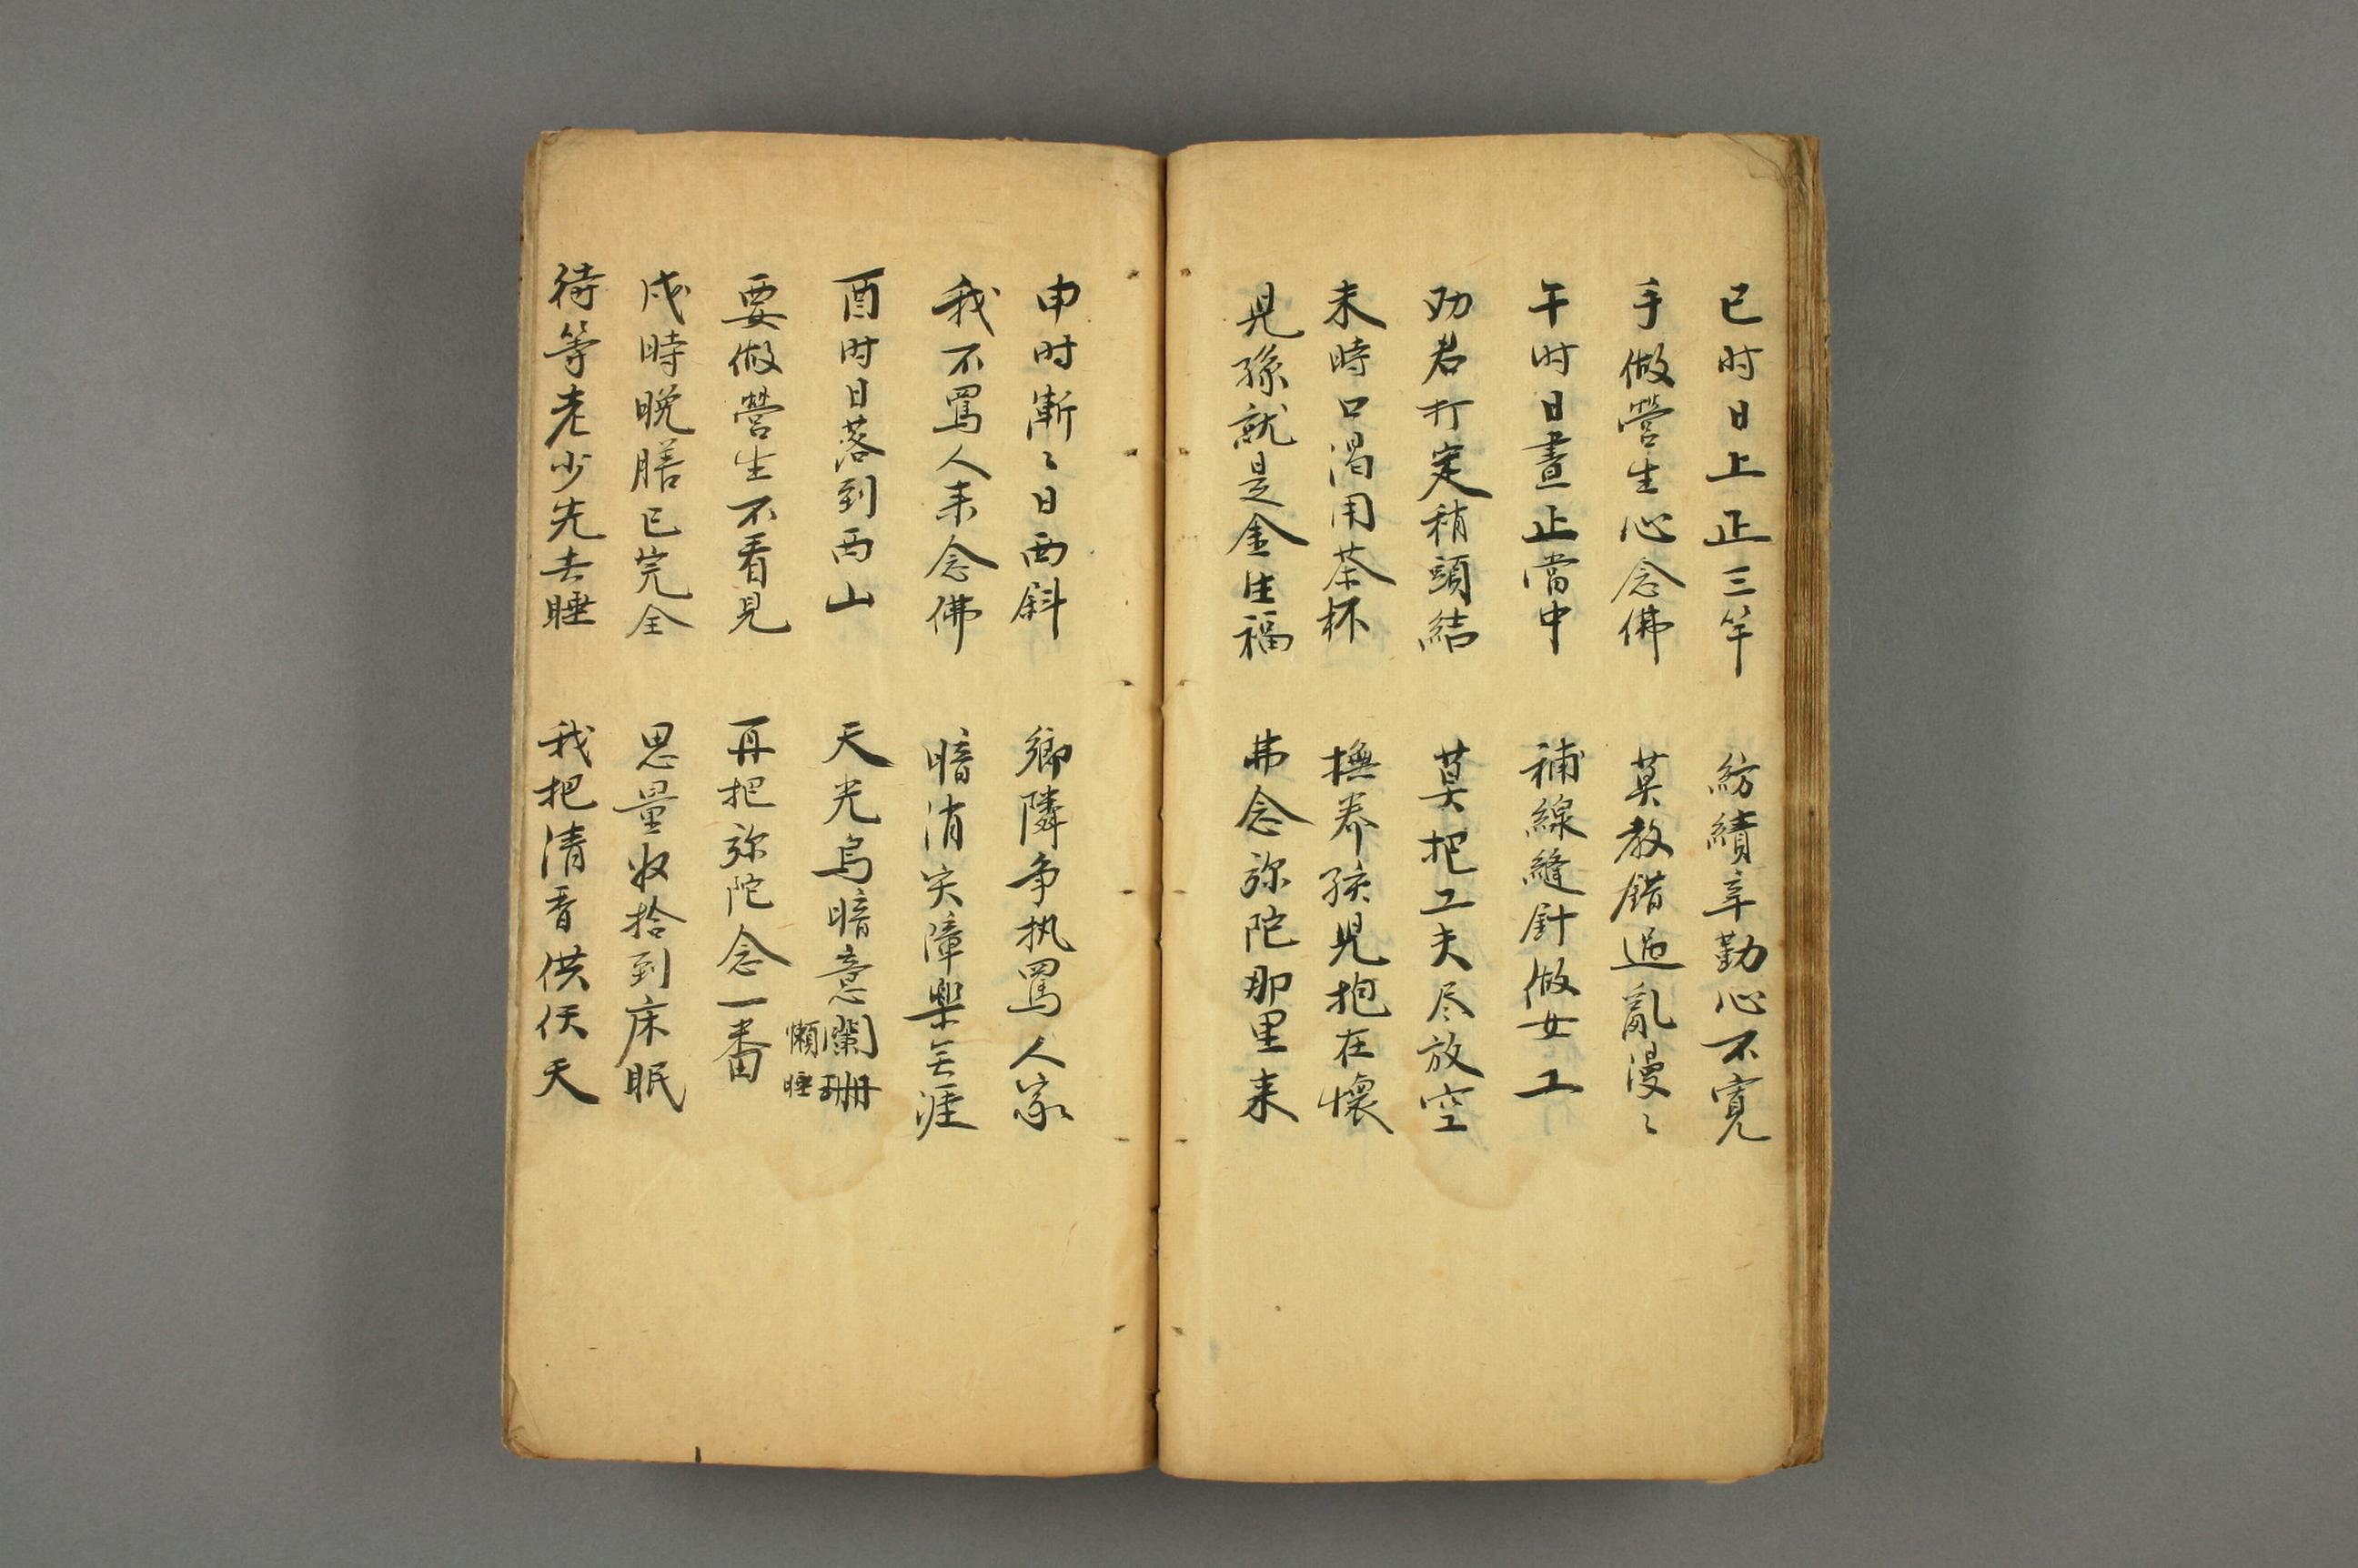 巳时日上正三竿 紡績辛勤心不寬
手做營生心念佛 莫教錯過亂漫〻
午时日晝正當中 補線縫針做女工
劝君打定稍頭結 莫把工夫尽放空
未時口渴用茶杯 撫养孩児抱在懷
児孫就是金生福 弗念弥陀那里来
申时漸〻日西斜 鄉隣争执罵人家
我不罵人来念佛 暗消灾障樂无涯
酉时日落到西山 天光烏暗意闌珊
懶睡
要做營生不看見 再把弥陀念一番
戌時晚膳已完全 思量收拾到床眠
待等老少先去睡 我把清香供佛天